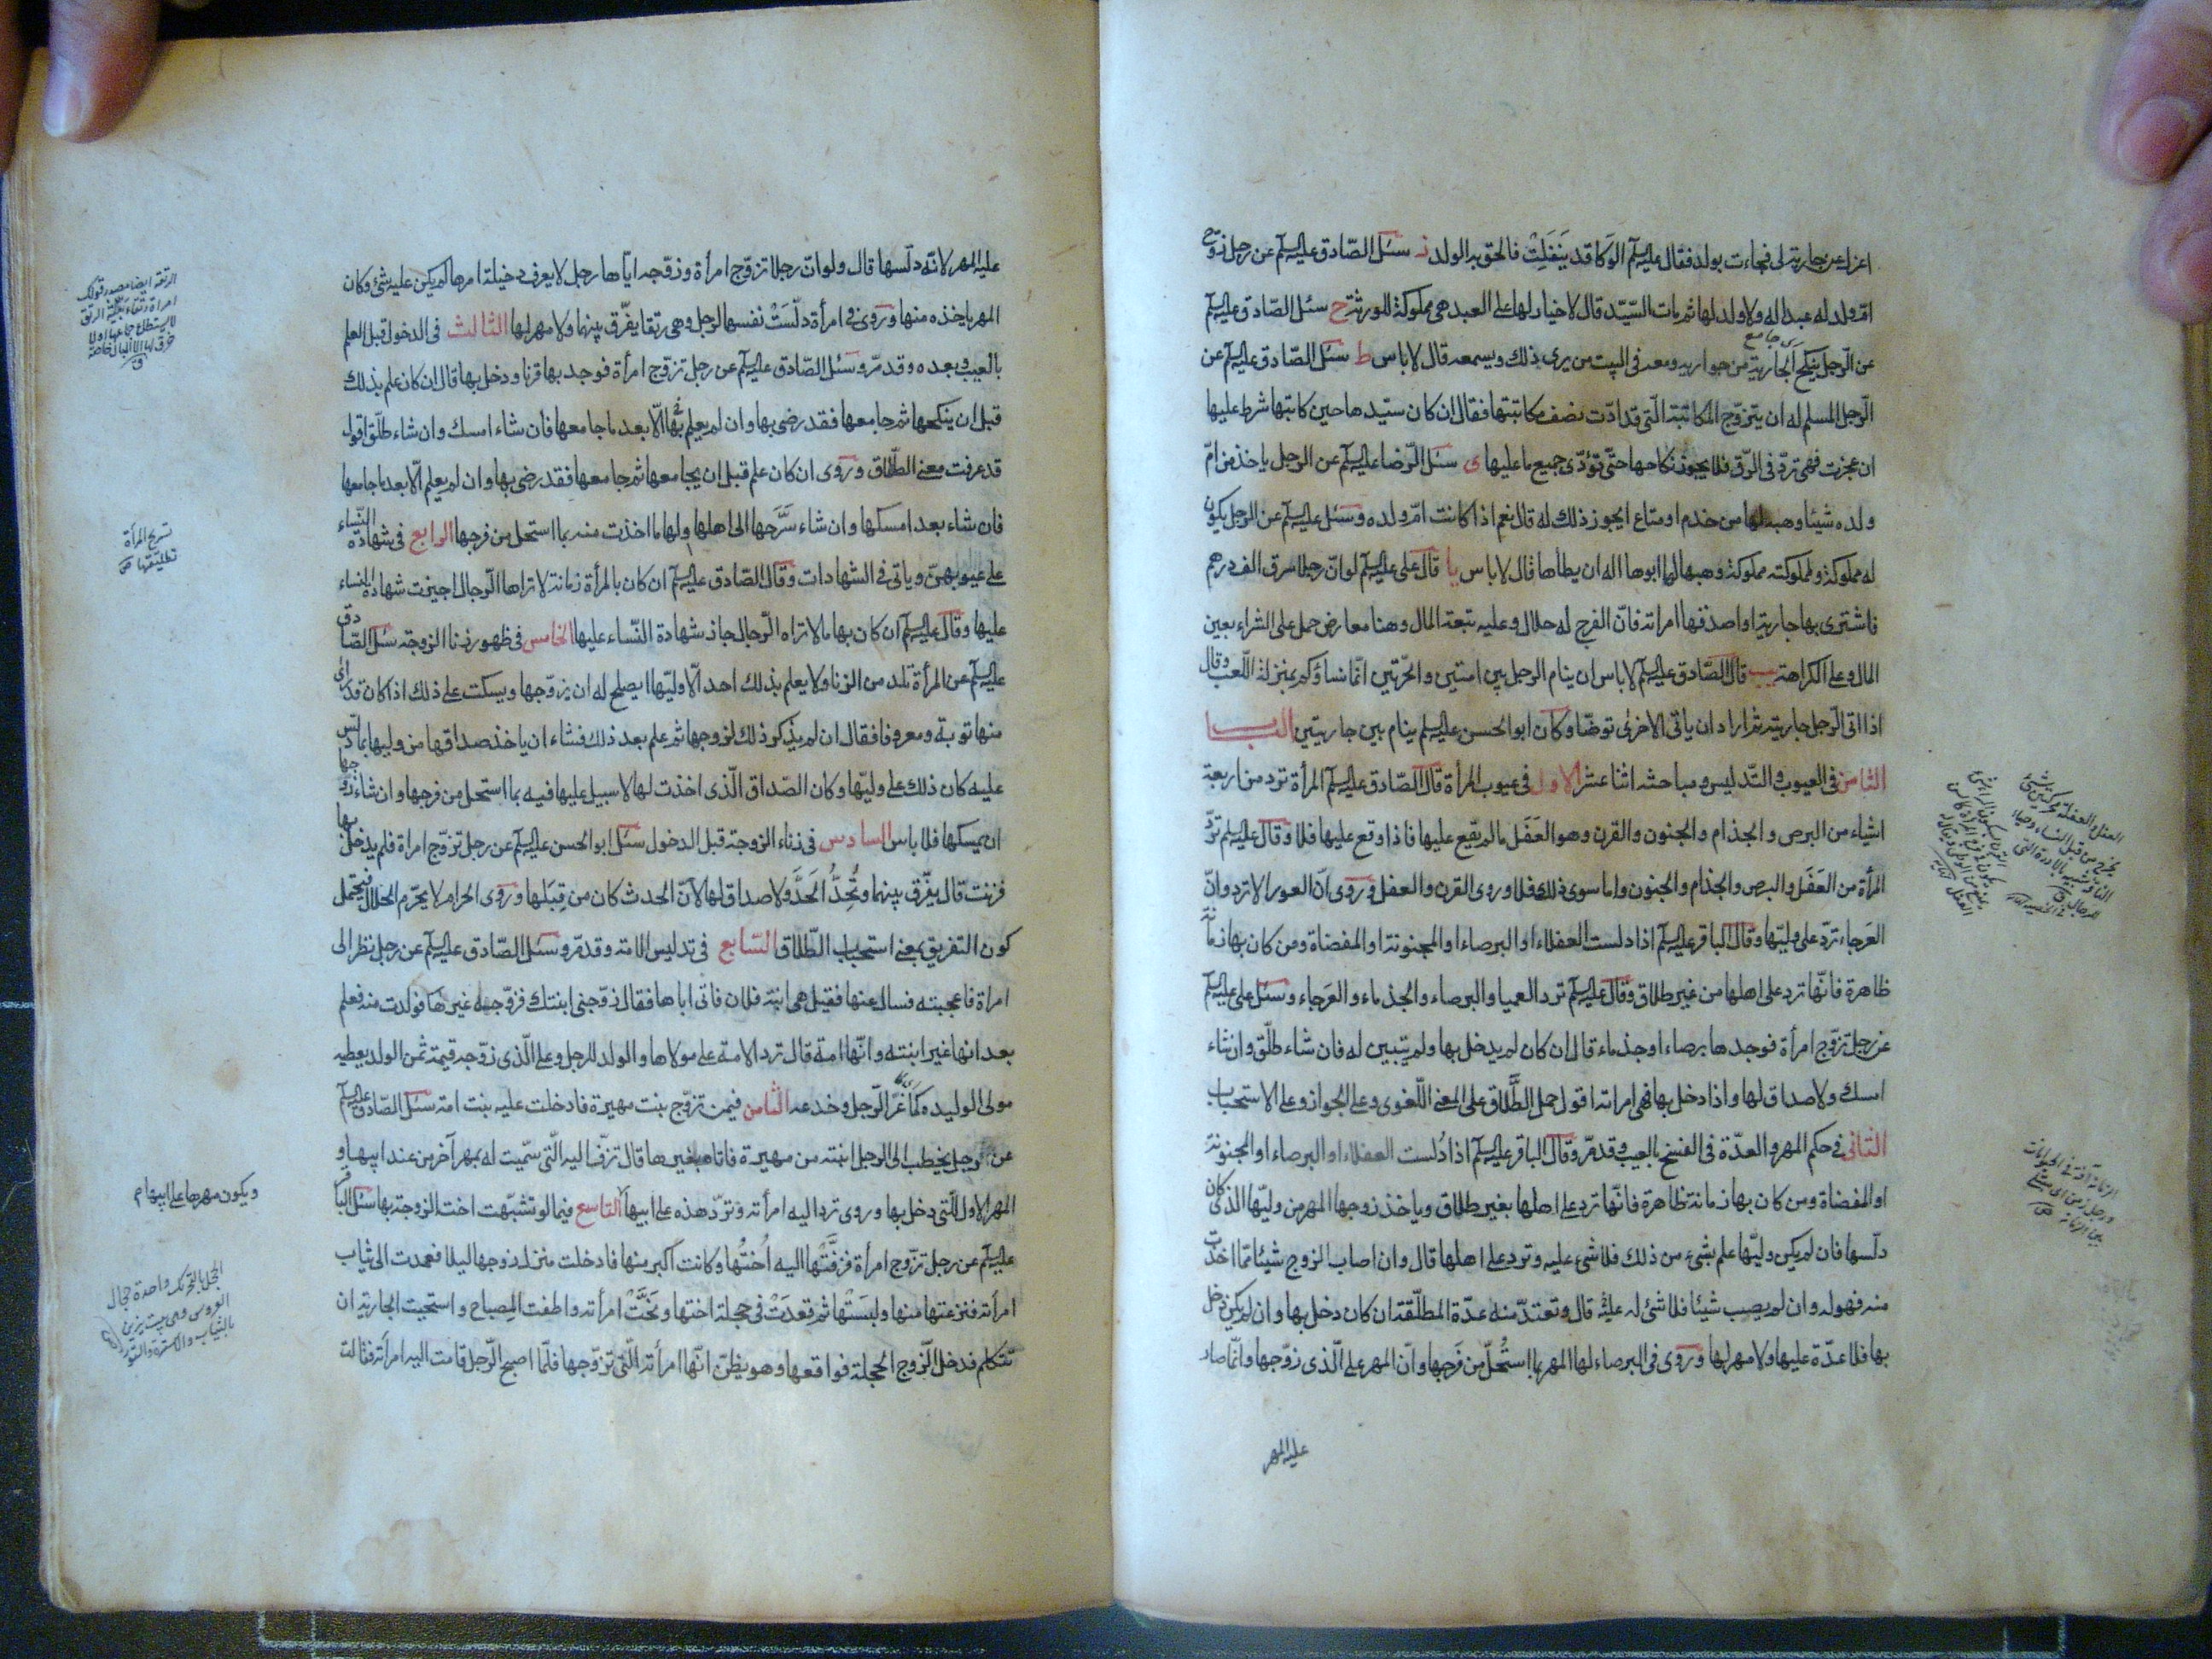 اعزل عن جارية لى فجاءت بولد فقال عليه السلم الوكا قد ينفلت فالحق به الولد ز سئل الصّادق عليه السلم عن رجل زوّج
امّ ولد له عبدا له ولا ولد لها ثم مات السّيّد قال لا خيار لها على العبد هى مملوكة للورثة ح سئل الصّادق عليه السلم
عن الرّجل ينكح الجارية من جواريه ومعه فى البيت من يرى ذلك ويسمعه قال لا باس ط سئل الصّادق عليه السلم عن
الرّجل المسلم له ان يتزوّج المكاتبة الّتى قد ادّت نصف مكاتبتها فقال ان كان سيّدها حين كاتبها شرط عليها
ان عجزت فهى تردّ فى الرّق فلا يجوز نكاحها حتّى تؤدّى جميع ما عليها ى سئل الرّضا عليه السلم عن الرجل ياخذ من امّ
ولده شيئا وهبه لها من خدم او متاع ايجوز ذلك له قال نعم اذا كانت امّ ولده وسئل عليه السلم عن الرجل يكون
له مملوكة ولمملوكته مملوكة وهبها لها ابوها اله ان يطأها قال لا باس يا قال على عليه السلم لو انّ رجلا سرق الف درهم
فاشترى بها جارية او اصدقها امراته فانّ الفرج له حلال وعليه تبعة المال وهنا معارض حمل على الشراء بعين
المال وعلى الكراهة يب قال الصّادق عليه السلم لا باس ان ينام الرجل بين امتين والحرّتين انّما نساؤكم بمنزلة اللّعب وقال
اذا اتى الرّجل جاريته ثم اراد ان ياتى الاخرى توضّا وكان ابو الحسن عليه السلم ينام بين جاريتين الباب
الثامن فى العيوب والتّدليس ومباحثه اثنا عشر الاول فى عيوب المرأة قال الصّادق عليه السلم المرأة ترد من اربعة
اشياء من البرص والجذام والجنون والقرن وهو العَفَل ما لم يقع عليها فاذا وقع عليها فلا وقال عليه السلم تردّ
المرأة من العَفَل والبرص والجذام والجنون واما سوى ذلك فلا وروى القرن والعفل وروى انّ العورا لا ترد وانّ
العَرجاء تردّ على وليّها وقال الباقر عليه السلم اذا دلست العفلاء او البرصاء او المجنونة او المفضاة ومن كان بها زمانة
ظاهرة فانّها ترد على اهلها من غير طلاق وقال عليه السلم ترد العميا والبرصاء والجذماء والعَرجاء وسئل على عليه السلم
عن رجل تزوّج امرأة فوجدها برصاء او جذماء قال ان كان لم يدخل بها ولم يتبين له فان شاء طلّق وان شاء
امسك ولا صداق لها واذا دخل بها فهى امراته اقول حمل الطّلاق على المعنى اللّغوى وعلى الجواز وعلى الاستحباب
الثانى فى حكم المهر والعدّة فى الفسخ بالعيب وقد مرّ وقال الباقر عليه السلم اذا دُلست العفلاء او البرصاء او المجنونة
او المفضاة ومن كان بها زمانة ظاهرة فانّها ترد على اهلها بغير طلاق وياخذ زوجها المهر من وليّها الذى كان
دلّسها فان لم يكن وليّها علم بشىء من ذلك فلا شىء عليه وترد على اهلها قال وان اصاب الزوج شيئا ممّا اخذت
منه فهو له وان لم يصب شيئا فلا شئ له عليه قال وتعتدّ منه عدّة المطلّقة ان كان دخل بها وان لم يكن دخل
بها فلا عدّة عليها ولا مهر لها وروى فى البرصاء لها المهر بما استُحلّ من فَرجها وانّ المهر على الّذى زوّجها وانّما صار
عليه المهر
عليه المهر لانّه دلّسها قال ولو انّ رجلا تزوّج امرأة وزوّجه ايّاها رجل لا يعرف دخيلة امرها لم يكن عليه شئ وكان
المهر ياخذه منها وروى فى امرأة دلّسَتْ نفسها لرجل وهى رتقا يفرّق بينهما ولا مهر لها الثالث فى الدخول قبل العلم
بالعيب وبعده وقد مرّ وسئل الصّادق عليه السلم عن رجل تزوّج امرأة فوجد بها قرنا ودخل بها قال ان كان علم بذلك
قبل ان ينكحها ثم جامعها فقد رضى بها وان لم يعلم بها الّا بعد ما جامعها فان شاء امسك وان شاء طلّق اقول
قد عرفت معنى الطّلاق وروى ان كان علم قبل ان يجامعها ثم جامعها فقد رضى بها وان لم يعلم الّا بعد ما جامعها
فان شاء بعد امسكها وان شاء سَرَّحها الى اهلها ولها ما اخذت منه بما استحل من فرجها الرابع فى شهادة النّساء
على عيوبهنّ وياتى فى الشهادات وقال الصّادق عليه السلم ان كان بالمرأة زمانة لا تراها الرّجال اجيزت شهادة النساء
عليها وقال عليه السلم ان كان بها ما لا تراه الرّجال جاز شهادة النّساء عليها الخامس فى ظهور زنا الزوجة سئل الصّادق
عليه السلم عن المرأة تلد من الزنا ولا يعلم بذلك احد الّا وليّها ايصلح له ان يزوّجها ويسكت على ذلك اذا كان قد راى
منها توبة ومعروفا فقال ان لم يذكر ذلك لزوجها ثم علم بعد ذلك فشاء ان ياخذ صداقها من وليها بما دلّس
عليه كان ذلك على وليّها وكان الصّداق الّذى اخذت لها لا سبيل عليها فيه بما استحل من فرجها وان شاء زوجها
ان يمسكها فلا باس السادس فى زناء الزوجة قبل الدخول سئل ابو الحسن عليه السلم عن رجل تزوّج امراة فلم يدخل بها
فزنت قال يفرّق بينهما وتُحدُّ الحَدَّ ولا صداق لها لانّ الحدث كان من قِبَلها وروى الحرام لا يحرّم الحلال فيحتمل
كون التفريق بمعنى استحباب الطّلاق السّابع فى تدليس الامة وقد مرّ وسئل الصّادق عليه السلم عن رجل نظر الى
امراة فاعجبته فسال عنها فقيل هى ابنة فلان فاتى اباها فقال زوّجنى ابنتك فزوّجه غيرها فولدت منه فعلم
بعد انها غير ابنته وانّها امة قال ترد الامة على مولاها والولد للرجل وعلى الّذى زوّجه قيمة ثمن الولد يعطيه
مولى الوليده كما غرّ الرّجل وخدعه الثامن فيمن تزوّج بنت مهيرة فادخلت عليه بنت امة سئل الصّادق عليه السلم
عن الرجل يخطب الى الرجل ابنته من مهيرة فاتاه بغيرها قال تزفّ اليه الّتى سمّيت له بمهر آخر من عند ابيها و
المهر الاول للّتى دخل بها وروى ترد اليه امرأته وتردّ هذه على ابيها التاسع فيما لو تشبّهت اخت الزوجة بها سئل الباقر
عليه السلم عن رجل تزوّج امرأة فزفّتها اليه اُختُها وكانت اكبر منها فادخلت منزل زوجها ليلا فعمدت الى ثياب
امرأته فنزعتها منها ولبسَتْها ثم قعدَتْ فى حجلة اختها ونَحَّتْ امرأته واطفت المصباح واستحيت الجارية ان
تتكلم فدخل الزّوج الحجلة فواقعها وهو يظنّ انّها امرأته الّتى تزوّجها فلمّا اصبح الرّجل قامت اليه امرأته فقالت
تسريح المرأة
تطليقها
ويكون مهرها على ابيها م